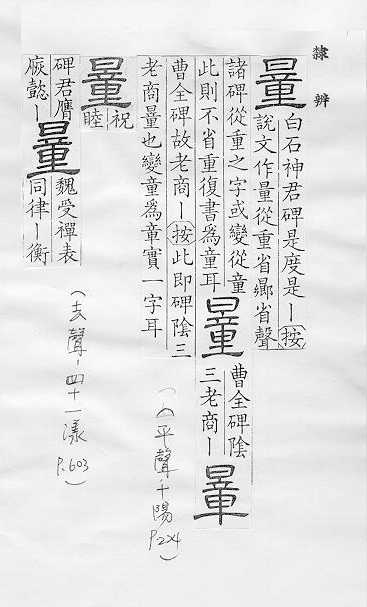 隸辨
量
白石神君碑是度是丨按
說文作量從重省鄉省聲
諸碑從重之字或變從童
此則不省重復書爲童耳
量
曹全碑陰
三老商丨
量
曹全碑故老商丨按此即碑陰三
老商量也變童爲章實一字耳
(平聲十陽 P.224)
量
祝
睦
碑君膺
厥懿丨
量
魏受禪表
同律丨衡
(去聲-四十一漾 P.603)